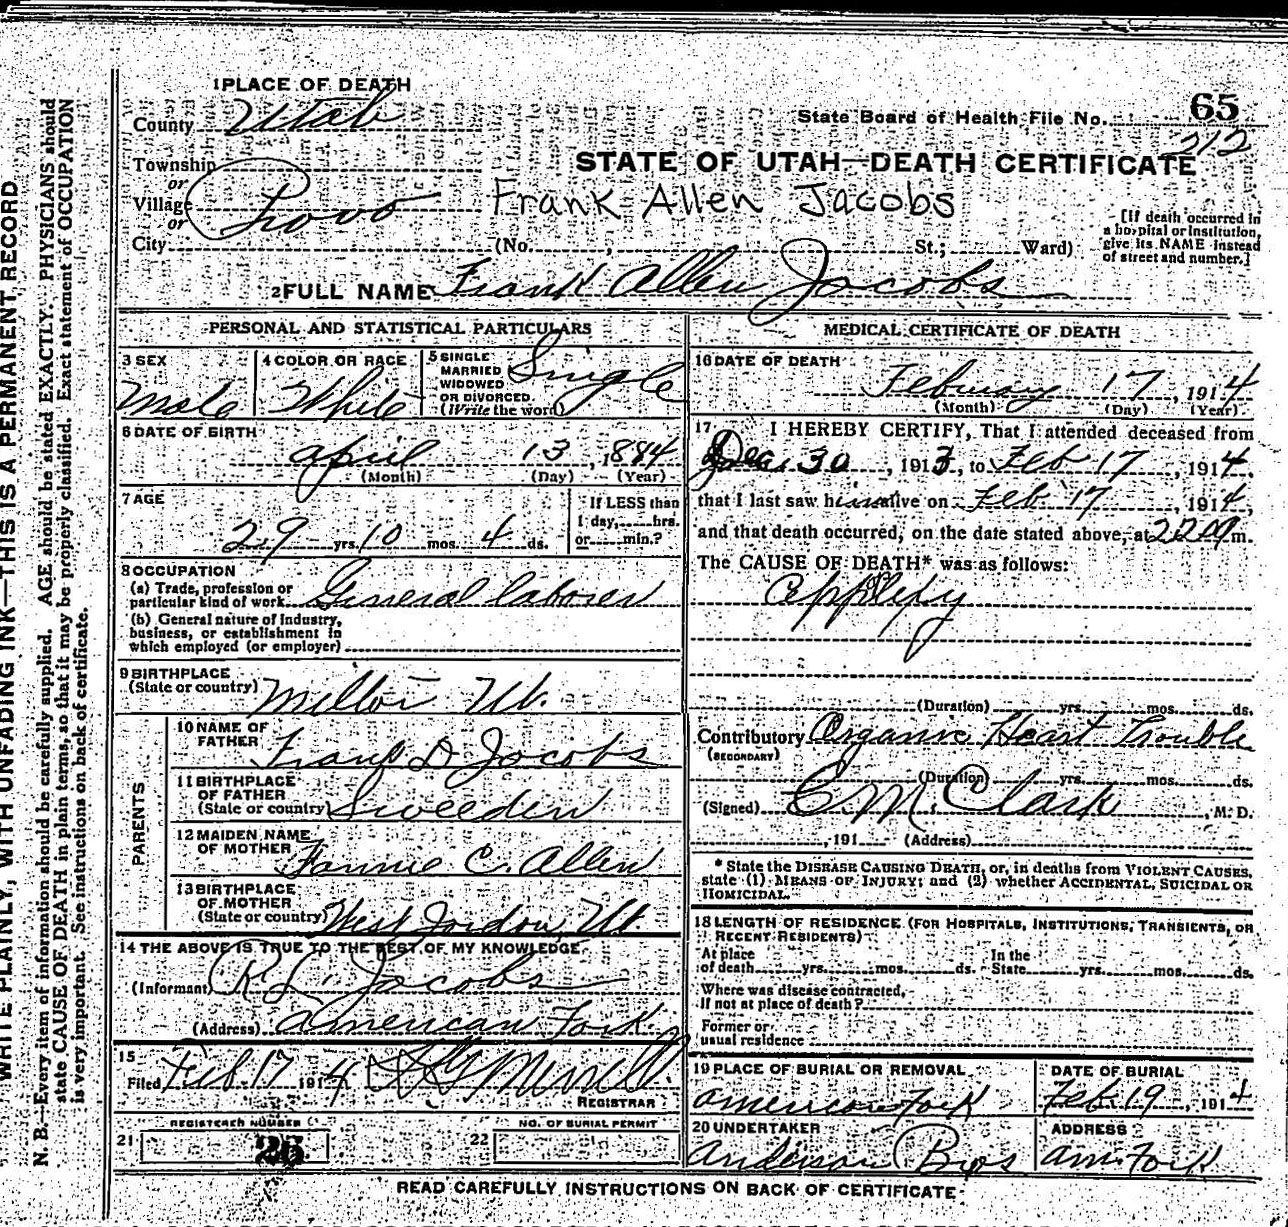 WRITE PLAINLY, WITH UNFADING INK—THIS IS A PERMANENT RECORD
N. B.—Every item of information should be carefully supplied. AGE should be stated EXACTLY. PHYSICIANS should
state CAUSE OF DEATH in plain terms, so that it may be properly classified. Exact statement of OCCUPATION
is very important. See instructions on back of certificate.
1 PLACE OF DEATH
County Utah
State Board of Health File No. 65
212
Township
or
Village Provo
or
City
STATE OF UTAH—DEATH CERTIFICATE
Frank Allen Jacobs
(No. , St.; Ward)
[If death occurred in
a hospital or institution,
give its NAME instead
of street and number.]
2 FULL NAME Frank Allen Jacobs
PERSONAL AND STATISTICAL PARTICULARS
3 SEX
Male
4 COLOR OR RACE
White
5 SINGLE
MARRIED
WIDOWED
OR DIVORCED
(Write the word)
Single
6 DATE OF BIRTH
April 13, 1884
(Month) (Day) (Year)
7 AGE
29 yrs. 10 mos. 4 ds.
If LESS than
1 day, hrs.
or min.?
8 OCCUPATION
(a) Trade, profession or
particular kind of work General laborer
(b) General nature of Industry,
business, or establishment in
which employed (or employer)
9 BIRTHPLACE
(State or country) Ut.
PARENTS
10 NAME OF
FATHER D Jacobs
11 BIRTHPLACE
OF FATHER
(State or country) Sweeden
12 MAIDEN NAME
OF MOTHER Fannie C. Allen
13 BIRTHPLACE
OF MOTHER
(State or country) West Jordon, Ut.
14 THE ABOVE IS TRUE TO THE BEST OF MY KNOWLEDGE
(Informant) R L Jacobs
(Address) American Fork
15
Filed Feb 17 1914
REGISTRAR
REGISTERED NUMBER
21 26
NO. OF BURIAL PERMIT
22
MEDICAL CERTIFICATE OF DEATH
16 DATE OF DEATH
February 17, 1914
(Month) (Day) (Year)
17 I HEREBY CERTIFY, That I attended deceased from
Dec. 30, 1913, to Feb 17, 1914,
that I last saw him alive on Feb 17, 1914,
and that death occurred, on the date stated above, at m.
The CAUSE OF DEATH* was as follows:
(Duration) yrs. mos. ds.
Contributory Organic Heart Trouble
(SECONDARY)
(Duration) yrs. mos. ds.
(Signed) C. M. Clark, M. D.
, 191 (Address)
* State the DISEASE CAUSING DEATH, or, in deaths from VIOLENT CAUSES,
state (1) MEANS OF INJURY; and (2) whether ACCIDENTAL, SUICIDAL OR
HOMICIDAL.
18 LENGTH OF RESIDENCE (FOR HOSPITALS, INSTITUTIONS, TRANSIENTS, OR
RECENT RESIDENTS)
At place
of death yrs. mos. ds.
In the
State yrs. mos. ds.
Where was disease contracted,
If not at place of death?
Former or
usual residence
19 PLACE OF BURIAL OR REMOVAL
American Fork
DATE OF BURIAL
Feb. 19, 1914
20 UNDERTAKER
Anderson Bros
ADDRESS
Am. Fork
READ CAREFULLY INSTRUCTIONS ON BACK OF CERTIFICATE